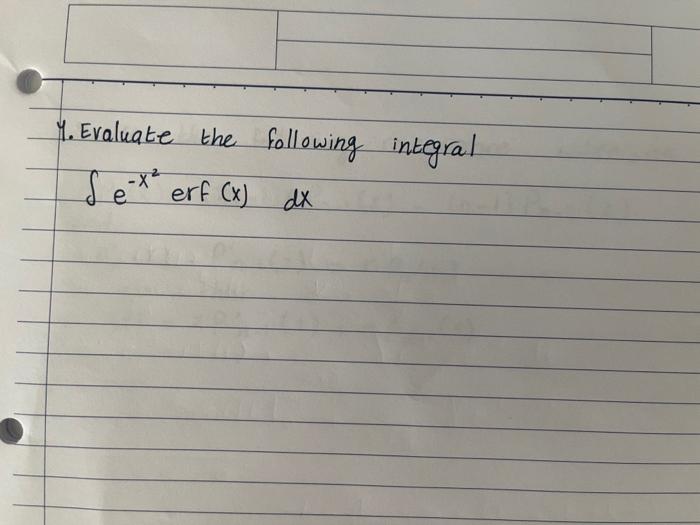 4. Evaluate the following integral
∫ e^-x² erf (x) dx